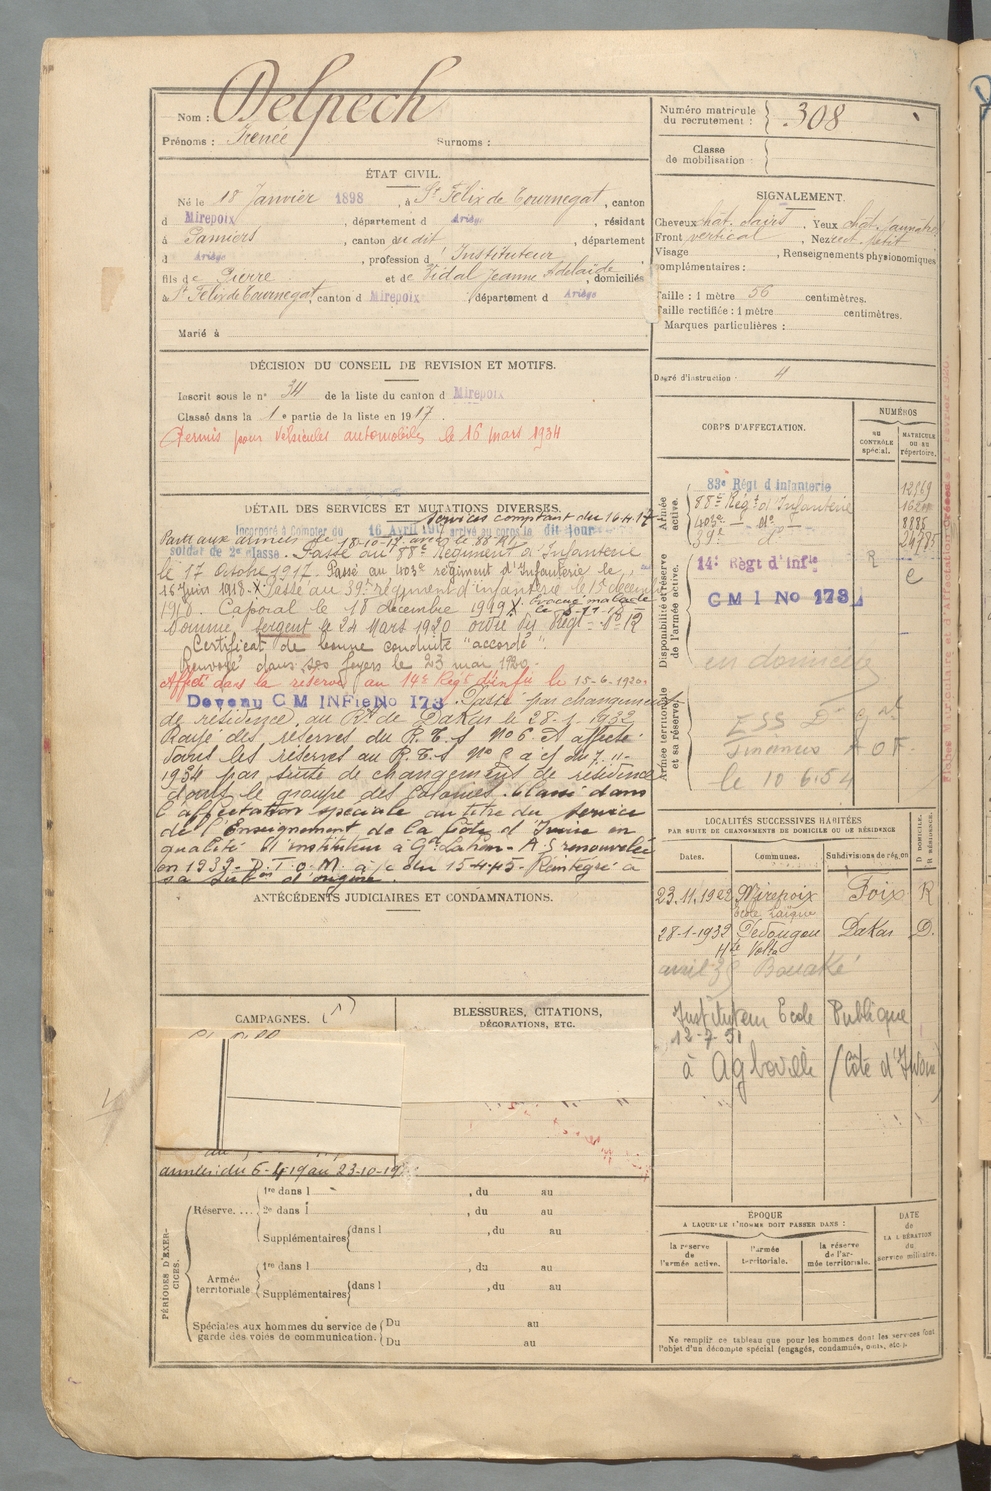 Nom : Delpech
Prénoms : Irénée Surnoms :
Numéro matricule du recrutement : 308
Classe de mobilisation :
ÉTAT CIVIL.
Né le 18 Janvier 1898, à St Félix de Tournegat, canton
d Mirepoix, département d Ariège, résidant
à Pamiers, canton du dit, département
d Ariège, profession d'Instituteur
fils de Pierre et de Vidal Jeanne Adélaïde, domiciliés
à St Félix de Tournegat, canton d Mirepoix, département d Ariège
Marié à
SIGNALEMENT.
Cheveux chât. clairs. Yeux chât.
Front vertical, Nez rect. petit
Visage, Renseignements physionomiques
complémentaires :
Taille : 1 mètre 56 centimètres.
Taille rectifiée : 1 mètre centimètres.
Marques particulières :
Degré d'instruction : 4
DÉCISION DU CONSEIL DE REVISION ET MOTIFS.
Inscrit sous le n° 34 de la liste du canton d Mirepoix
Classé dans la 1e partie de la liste en 1917.
Permis pour véhicules automobiles le 16 mars 1934
DÉTAIL DES SERVICES ET MUTATIONS DIVERSES.
Services comptant du 16-4-17
Incorporé à compter du 16 Avril 1917 arrivé au corps le dit jour
Parti aux armées le 18-10-17 avec le 88 RI
soldat de 2e classe. Passé au 88e Régiment d'Infanterie
le 17 Octobre 1917. Passé au 403e régiment d'Infanterie le
16 Juin 1918. X Passé au 39e régiment d'infanterie le 1er décembre
1918. Caporal le 18 décembre 1919 X. Evacué malade
Nommé Sergent le 24 Mars 1920 ordre du Régt N° 12
Certificat de bonne conduite "accordé".
Renvoyé dans ses foyers le 23 mai 1920.
Affecté dans la réserve au 14e Régt d'infie le 15-6-1920.
Devenu C M INFie No 173. Passé par changement
de résidence, au Rt de Dakar le 28-1-1932
Rayé des réserves du R.T.S N°6 et affecté
dans les réserves au R.T.S N° 2 à c/ du 7-11-
1934 par suite de changements de résidence
dans le groupe des Colonies. Classé dans
l'affectation spéciale au titre du Service
de l'Enseignement de la Côte d'Ivoire en
qualité d'instituteur à Gd Lahou - A.S renouvelée
en 1939 - D.T.O.M. à /c du 15-4-45 - Réintégré à
sa subon d'origine.
CORPS D'AFFECTATION.
NUMÉROS
au CONTRÔLE spécial.
MATRICULE ou au répertoire.
Armée active.
83e Régt d'infanterie
88e Régt d'Infanterie
403e - d° -
8885
39e d°
Disponibilité et réserve de l'armée active.
14e Régt d'Infie R
C M I No 173
en domicile
Armée territoriale et sa réserve.
le 10 6.54
LOCALITÉS SUCCESSIVES HABITÉES
PAR SUITE DE CHANGEMENTS DE DOMICILE OU DE RÉSIDENCE
Dates. Communes. Subdivisions de région D DOMICILE. R RÉSIDENCE.
23.11.1922 Mirepoix Foix R
Ecole Laïque
28-1-1932 Dédougou Dakar D.
Hte Volta
avril 39 Bouaké
Instituteur Ecole Publique
12-7-51
à Agboville (Côte d'Ivoire)
ANTÉCÉDENTS JUDICIAIRES ET CONDAMNATIONS.
CAMPAGNES.
BLESSURES, CITATIONS, DÉCORATIONS, ETC.
PÉRIODES D'EXERCICES.
Réserve....
1re dans l , du au
2e dans l , du au
Supplémentaires dans l , du au
Armée territoriale
1re dans l , du au
Supplémentaires dans l , du au
Spéciales aux hommes du service de garde des voies de communication.
Du au
Du au
ÉPOQUE
A LAQUELLE L'HOMME DOIT PASSER DANS :
la réserve de l'armée active.
l'armée territoriale.
la réserve de l'armée territoriale.
DATE de LA LIBÉRATION du service militaire.
Ne remplir ce tableau que pour les hommes dont les services font
l'objet d'un décompte spécial (engagés, condamnés, omis, etc.).